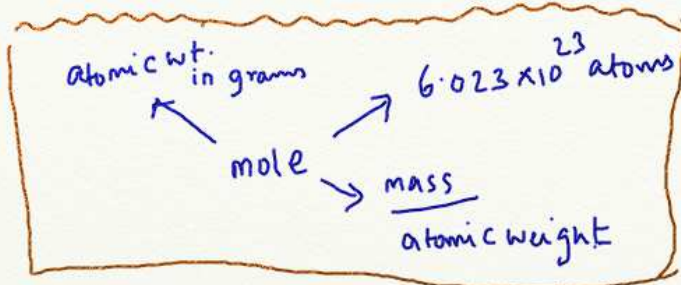 atomic wt.
in grams
6.023 x 10^23 atoms
mole
mass
atomic weight